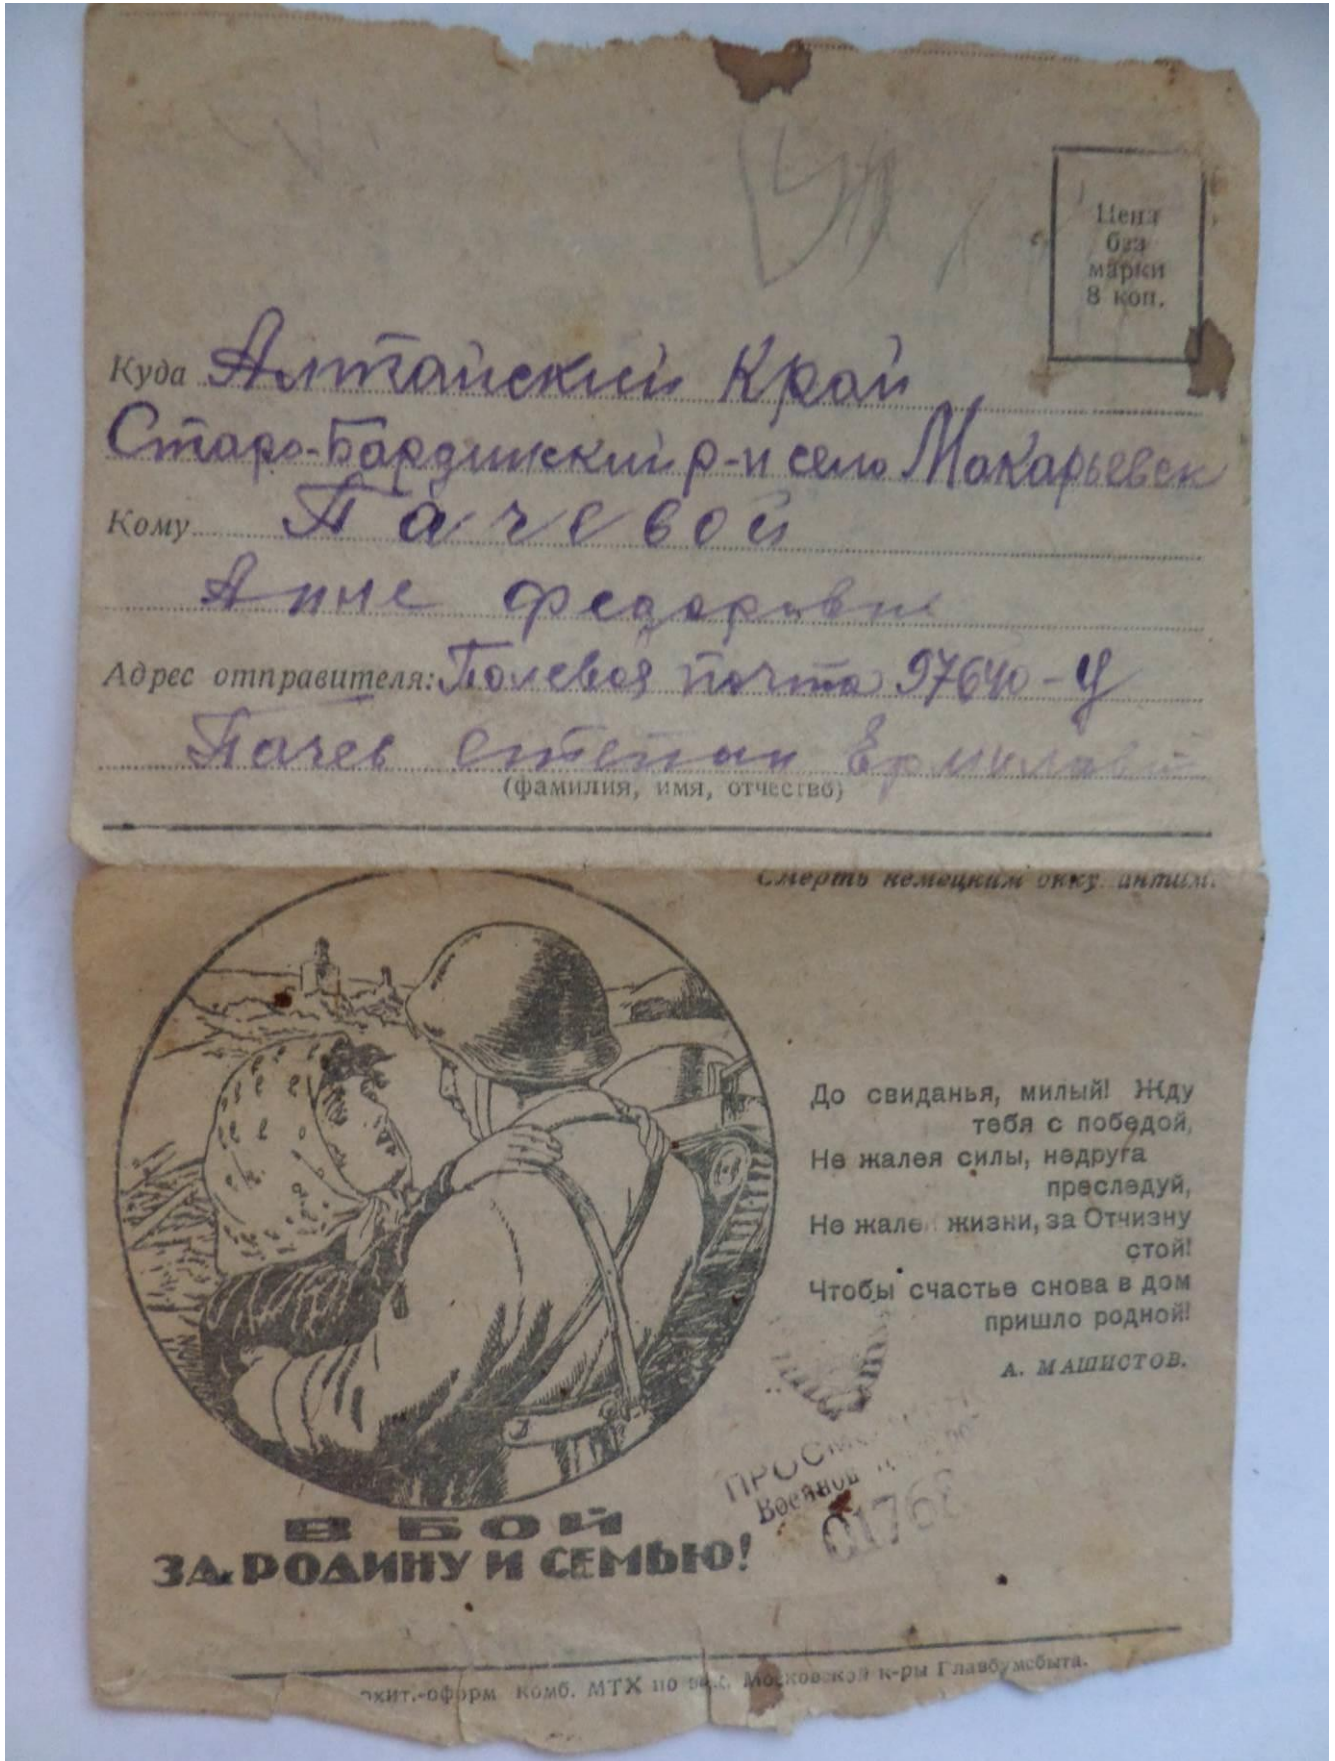 Цена
без
марки
8 коп.
Куда Алтайский Край
Старо-Бардинский р-н село Макарьевск
Кому Пачевой
Анне Федоровне
Адрес отправителя: Полевая почта 97640-У
Пачев Степан
(фамилия, имя, отчество)
Смерть немецким
До свиданья, милый! Жду
тебя с победой,
Не жалея силы, недруга
преследуй,
Не жалей жизни, за Отчизну
стой!
Чтобы счастье снова в дом
пришло родной!
А. МАШИСТОВ.
Военной
01768
В БОЙ
ЗА РОДИНУ И СЕМЬЮ!
хит.-оформ комб. МТХ по зак. Московской к-ры Главбумсбыта.